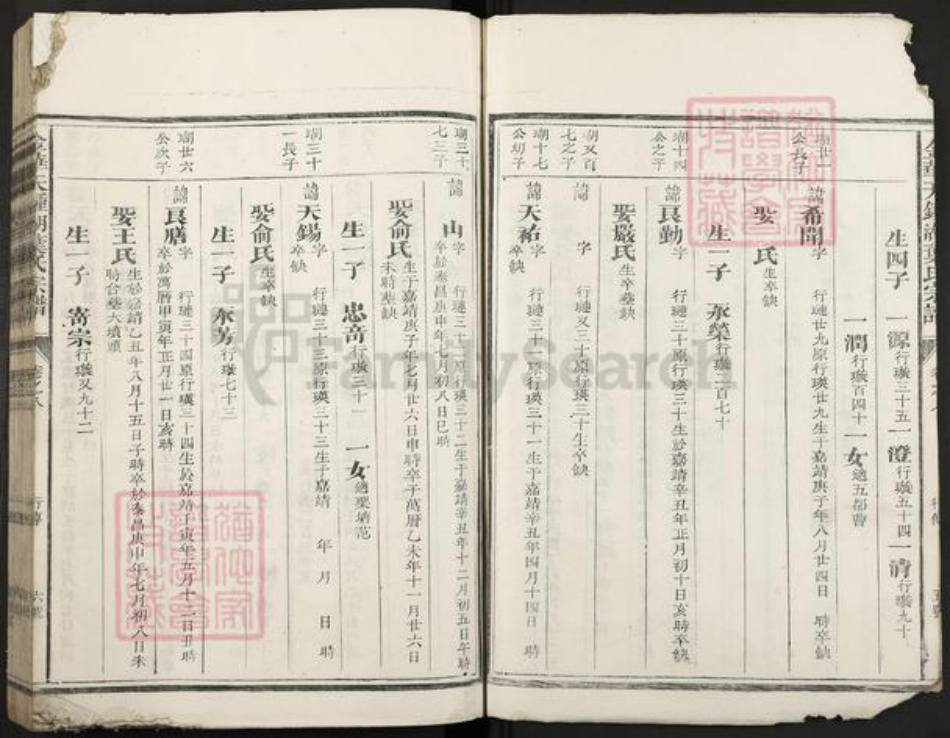 生四子
一源行璇三十五
一澄行璇五十四
一清行璇九十
一潤行璇百四十
一女適五都曹
公長子
諱希聞字 行璉廿九原行瑛廿九生于嘉靖庚子年八月廿四日 時卒缺
娶 氏生卒缺
生一子 永榮行璇二百七十
瑚十四
公之子
諱良勤字 行璉三十原行瑛三十生於嘉靖辛丑年正月初十日亥時卒缺
娶嚴氏生卒塟缺
瑚又百
七之子
諱 字 行璉又三十原行瑛三十生卒缺
瑚十七
公幼子
諱天祐字 行璉三十一原行瑛三十一生于嘉靖辛丑年四月十四日 時
卒缺
瑚三十
七三子
諱 山字 行璉三十二原行瑛三十二生于嘉靖辛丑年十二月初五日午時
卒於泰昌庚申年七月初八日巳時
娶俞氏生于嘉靖庚子年七月廿六日申時卒于萬曆乙未年十一月廿六日
未時塟缺
生一子 忠竒行璇三十一
一女適栗塘范
瑚三十
一長子
諱天錫字 行璉三十三原行瑛三十三生于嘉靖 年 月 日 時
卒缺
娶俞氏生卒缺
生一子 永芳行璇七十三
瑚廿六
公次子
諱良膳字 行璉三十四原行瑛三十四生於嘉靖壬寅年五月十二日丑時
卒於萬曆甲寅年正月廿一日亥時
娶王氏生於嘉靖乙丑年八月十五日子時卒於泰昌庚申年七月初八日未
時合塟大墳頭
生一子 寄宗行璇又九十二
行傳
六
FamilySearch